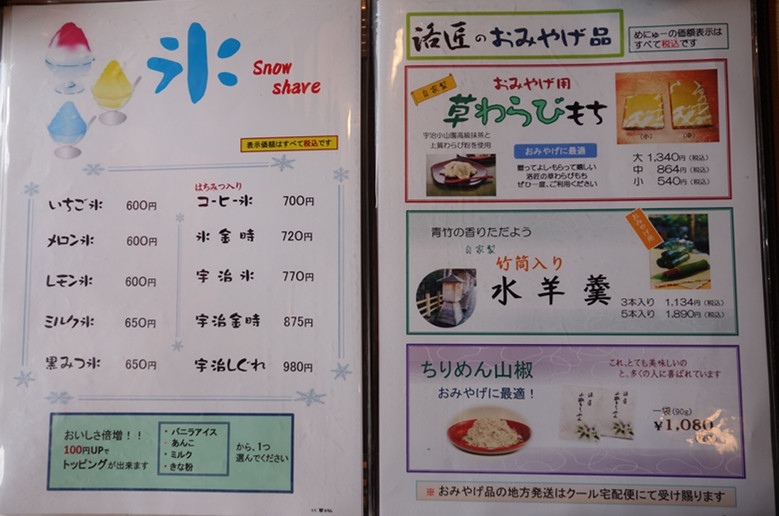 氷
Snow
share
表示価額はすべて税込です
いちご氷 600円
メロン氷 600円
レモン氷 600円
ミルク氷 650円
黒みつ氷 650円
はちみつ入り
コーヒー氷 700円
氷金時 720円
宇治氷 770円
宇治金時 875円
宇治しぐれ 980円
おいしさ倍増！！
100円UPで
トッピングが出来ます
・バニラアイス
・あんこ
・ミルク
・きな粉
から、1つ
選んでください
洛匠のおみやげ品
めにゅーの価額表示は
すべて税込です
自家製
おみやげ用
草わらびもち
宇治小山園高級抹茶と
上質わらび粉を使用
おみやげに最適
贈ってよし・もらって嬉しい
洛匠の草わらびもち
ぜひ一度、ご利用ください
(小) (中)
大 1,340円(税込)
中 864円(税込)
小 540円(税込)
青竹の香りただよう
自家製
竹筒入り
水羊羹
3本入り 1,134円(税込)
5本入り 1,890円(税込)
ちりめん山椒
おみやげに最適！
これ、とても美味しいの
と、多くの人に喜ばれています
一袋(90g)
¥1,080
(税込)
※おみやげ品の地方発送はクール宅配便にて受け賜ります